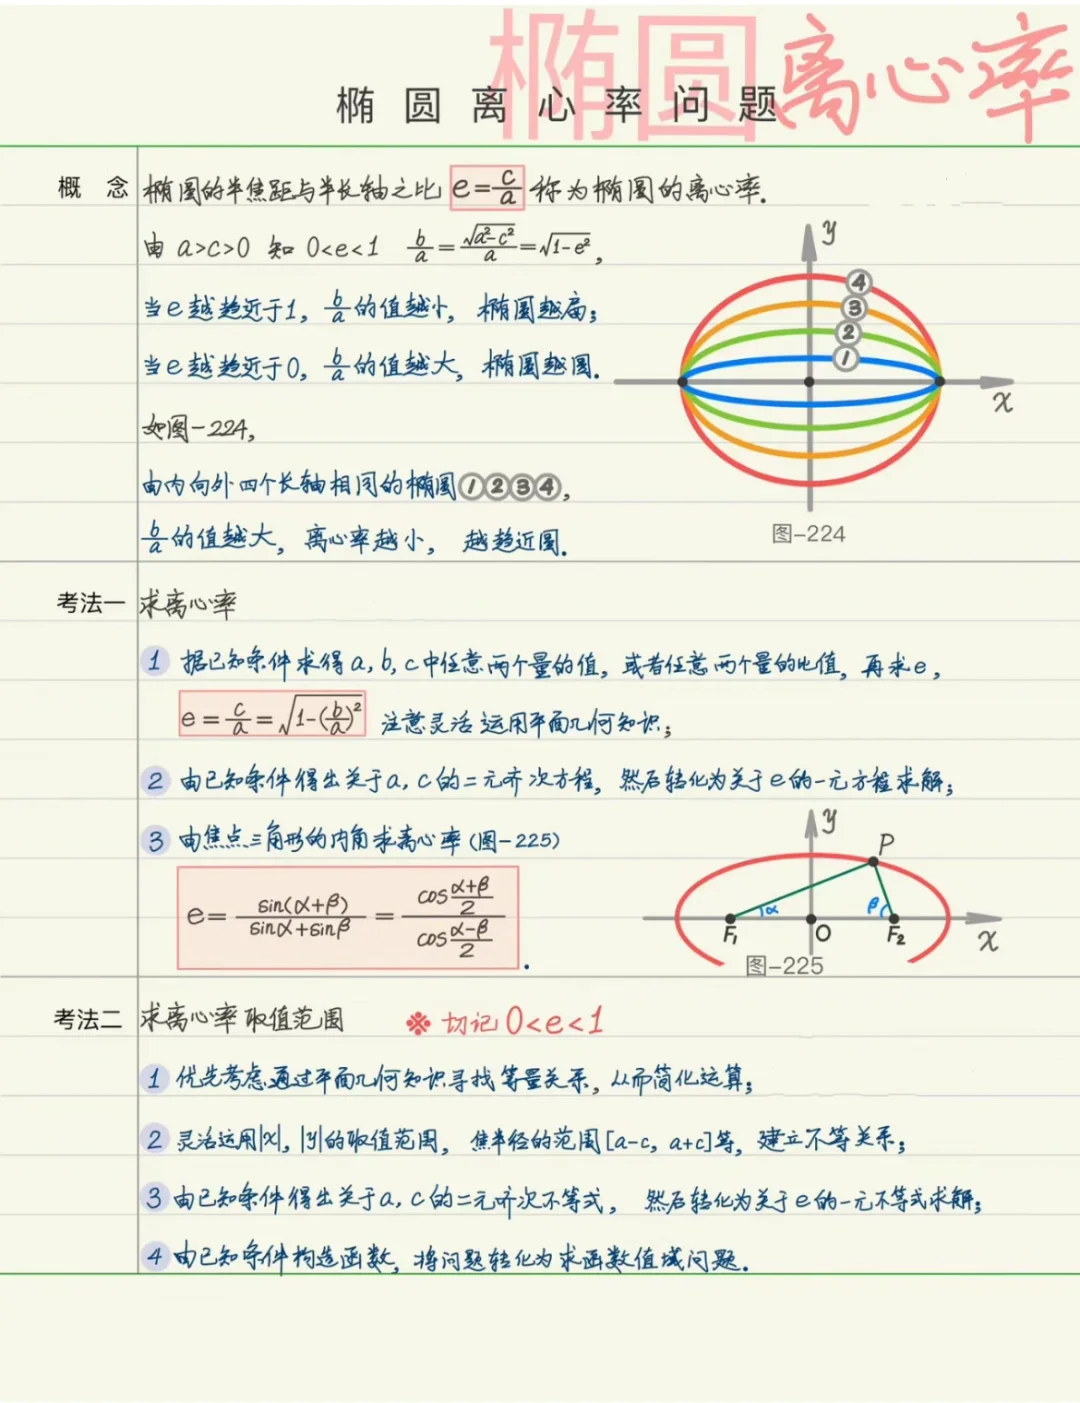 椭圆离心率
椭圆离心率问题
概念 椭圆的半焦距与半长轴之比 e=c/a 称为椭圆的离心率.
由 a>c>0 知 0<e<1 b/a=√(a²-c²)/a=√(1-e²),
当e越趋近于1, b/a的值越小, 椭圆越扁;
当e越趋近于0, b/a的值越大, 椭圆越圆.
如图-224,
由内向外四个长轴相同的椭圆①②③④,
b/a的值越大, 离心率越小, 越趋近圆.
y
④
③
②
①
x
图-224
考法一 求离心率
1 据已知条件求得a,b,c中任意两个量的值, 或者任意两个量的比值, 再求e,
e=c/a=√(1-(b/a)²) 注意灵活运用平面几何知识;
2 由已知条件得出关于a,c的二元齐次方程, 然后转化为关于e的一元方程求解;
3 由焦点三角形的内角求离心率(图-225)
e=sin(α+β)/(sinα+sinβ)=cos((α+β)/2)/cos((α-β)/2).
y
P
α β
F₁ O F₂ x
图-225
考法二 求离心率取值范围 ※ 切记 0<e<1
1 优先考虑通过平面几何知识寻找等量关系, 从而简化运算;
2 灵活运用|x|, |y|的取值范围, 焦半径的范围[a-c, a+c]等, 建立不等关系;
3 由已知条件得出关于a, c的二元齐次不等式, 然后转化为关于e的一元不等式求解;
4 由已知条件构造函数, 将问题转化为求函数值域问题.